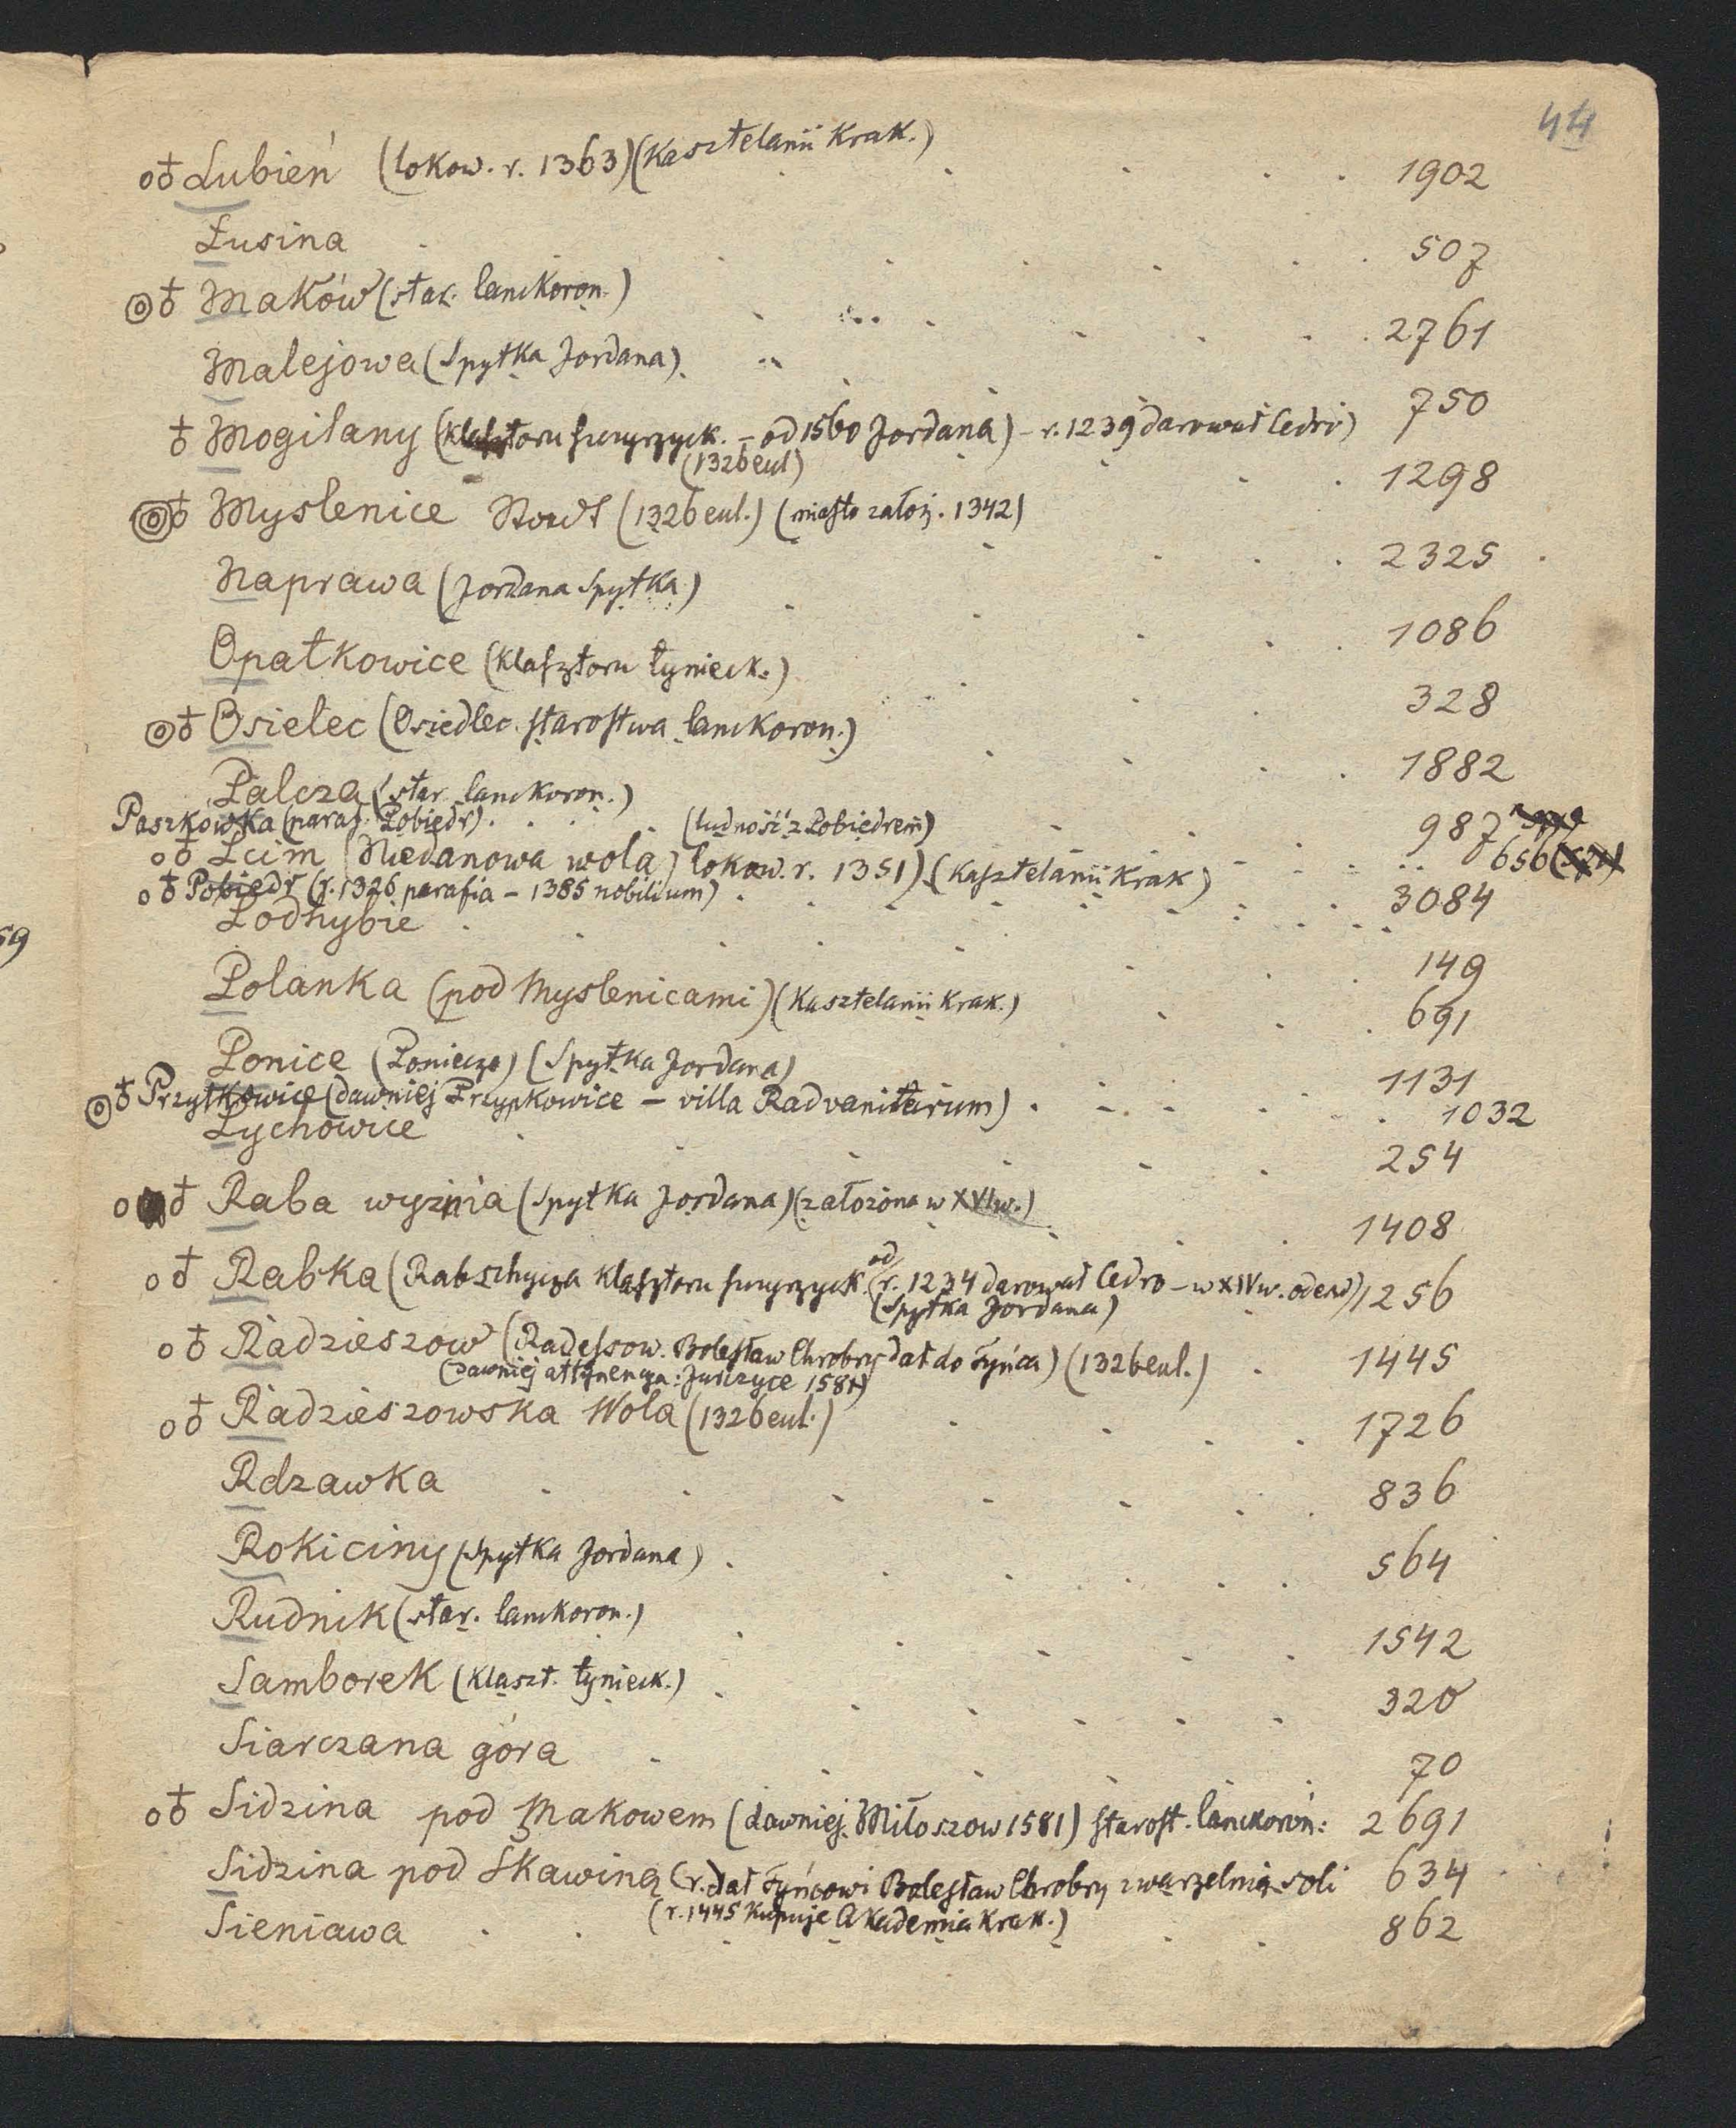 44
Lubień (lokow. r. 1363) (Kasztelanii Krak.) 1902
Łusina 507
Maków (star. lanckoron.) 2761
Malejowa (Spytka Jordana) 750
Mogilany (Klasztoru szczyrzyck. – od 1560 Jordana) – r. 1239 darował Cedro)
(1326 eccl) 1298
Myslenice (1326 eccl.) (miasto założ. 1342) 2325
Naprawa (Jordana Spytka) 1086
Opatkowice (Klasztoru tynieck.) 328
Osielec (Osiedlec starostwa lanckoron.) 1882
Palcza (star. lanckoron.) 987
Paszkówka (paraf. Pobiedr) (ludność z Pobiedrem) 656
Pcim (Niedanowa wola) lokow. r. 1351) (Kasztelanii Krak) 3084
Pobiedr (r. 1326 parafia – 1385 nobilium)
Podhybie 149
Polanka (pod Myslenicami) (Kasztelanii Krak.) 691
Ponice (Poniecze) (Spytka Jordana) 1131
Przytkowice (dawniej Przypkowice – villa Radvanitarum) 1032
Pychowice 254
Raba wyżnia (Spytka Jordana) (założona w XVI w.) 1408
Rabka (Rabschycza Klasztoru szczyrzyck. od r. 1234 darował Cedro – w XIV w. 1256
(Spytka Jordana)
Radzieszow (Radessow. Bolesław Chrobry dał do Tyńca) (1326 eccl.) 1445
(Dawniej attynencya: Jurczyce 1581)
Radzieszowska Wola (1326 eccl.) 1726
Rdzawka 836
Rokiciny (Spytka Jordana) 564
Rudnik (star. lanckoron.) 1542
Samborek (Klaszt. tynieck.) 320
Siarczana góra 70
Sidzina pod Makowem (dawniej Miłoszow 1581) starost. lanckoron. 2691
Sidzina pod Skawiną (r. dał Tyńcowi Bolesław Chrobry z warzelnią soli 634
(r. 1445 Kupuje Akademia Krak.)
Sieniawa 862